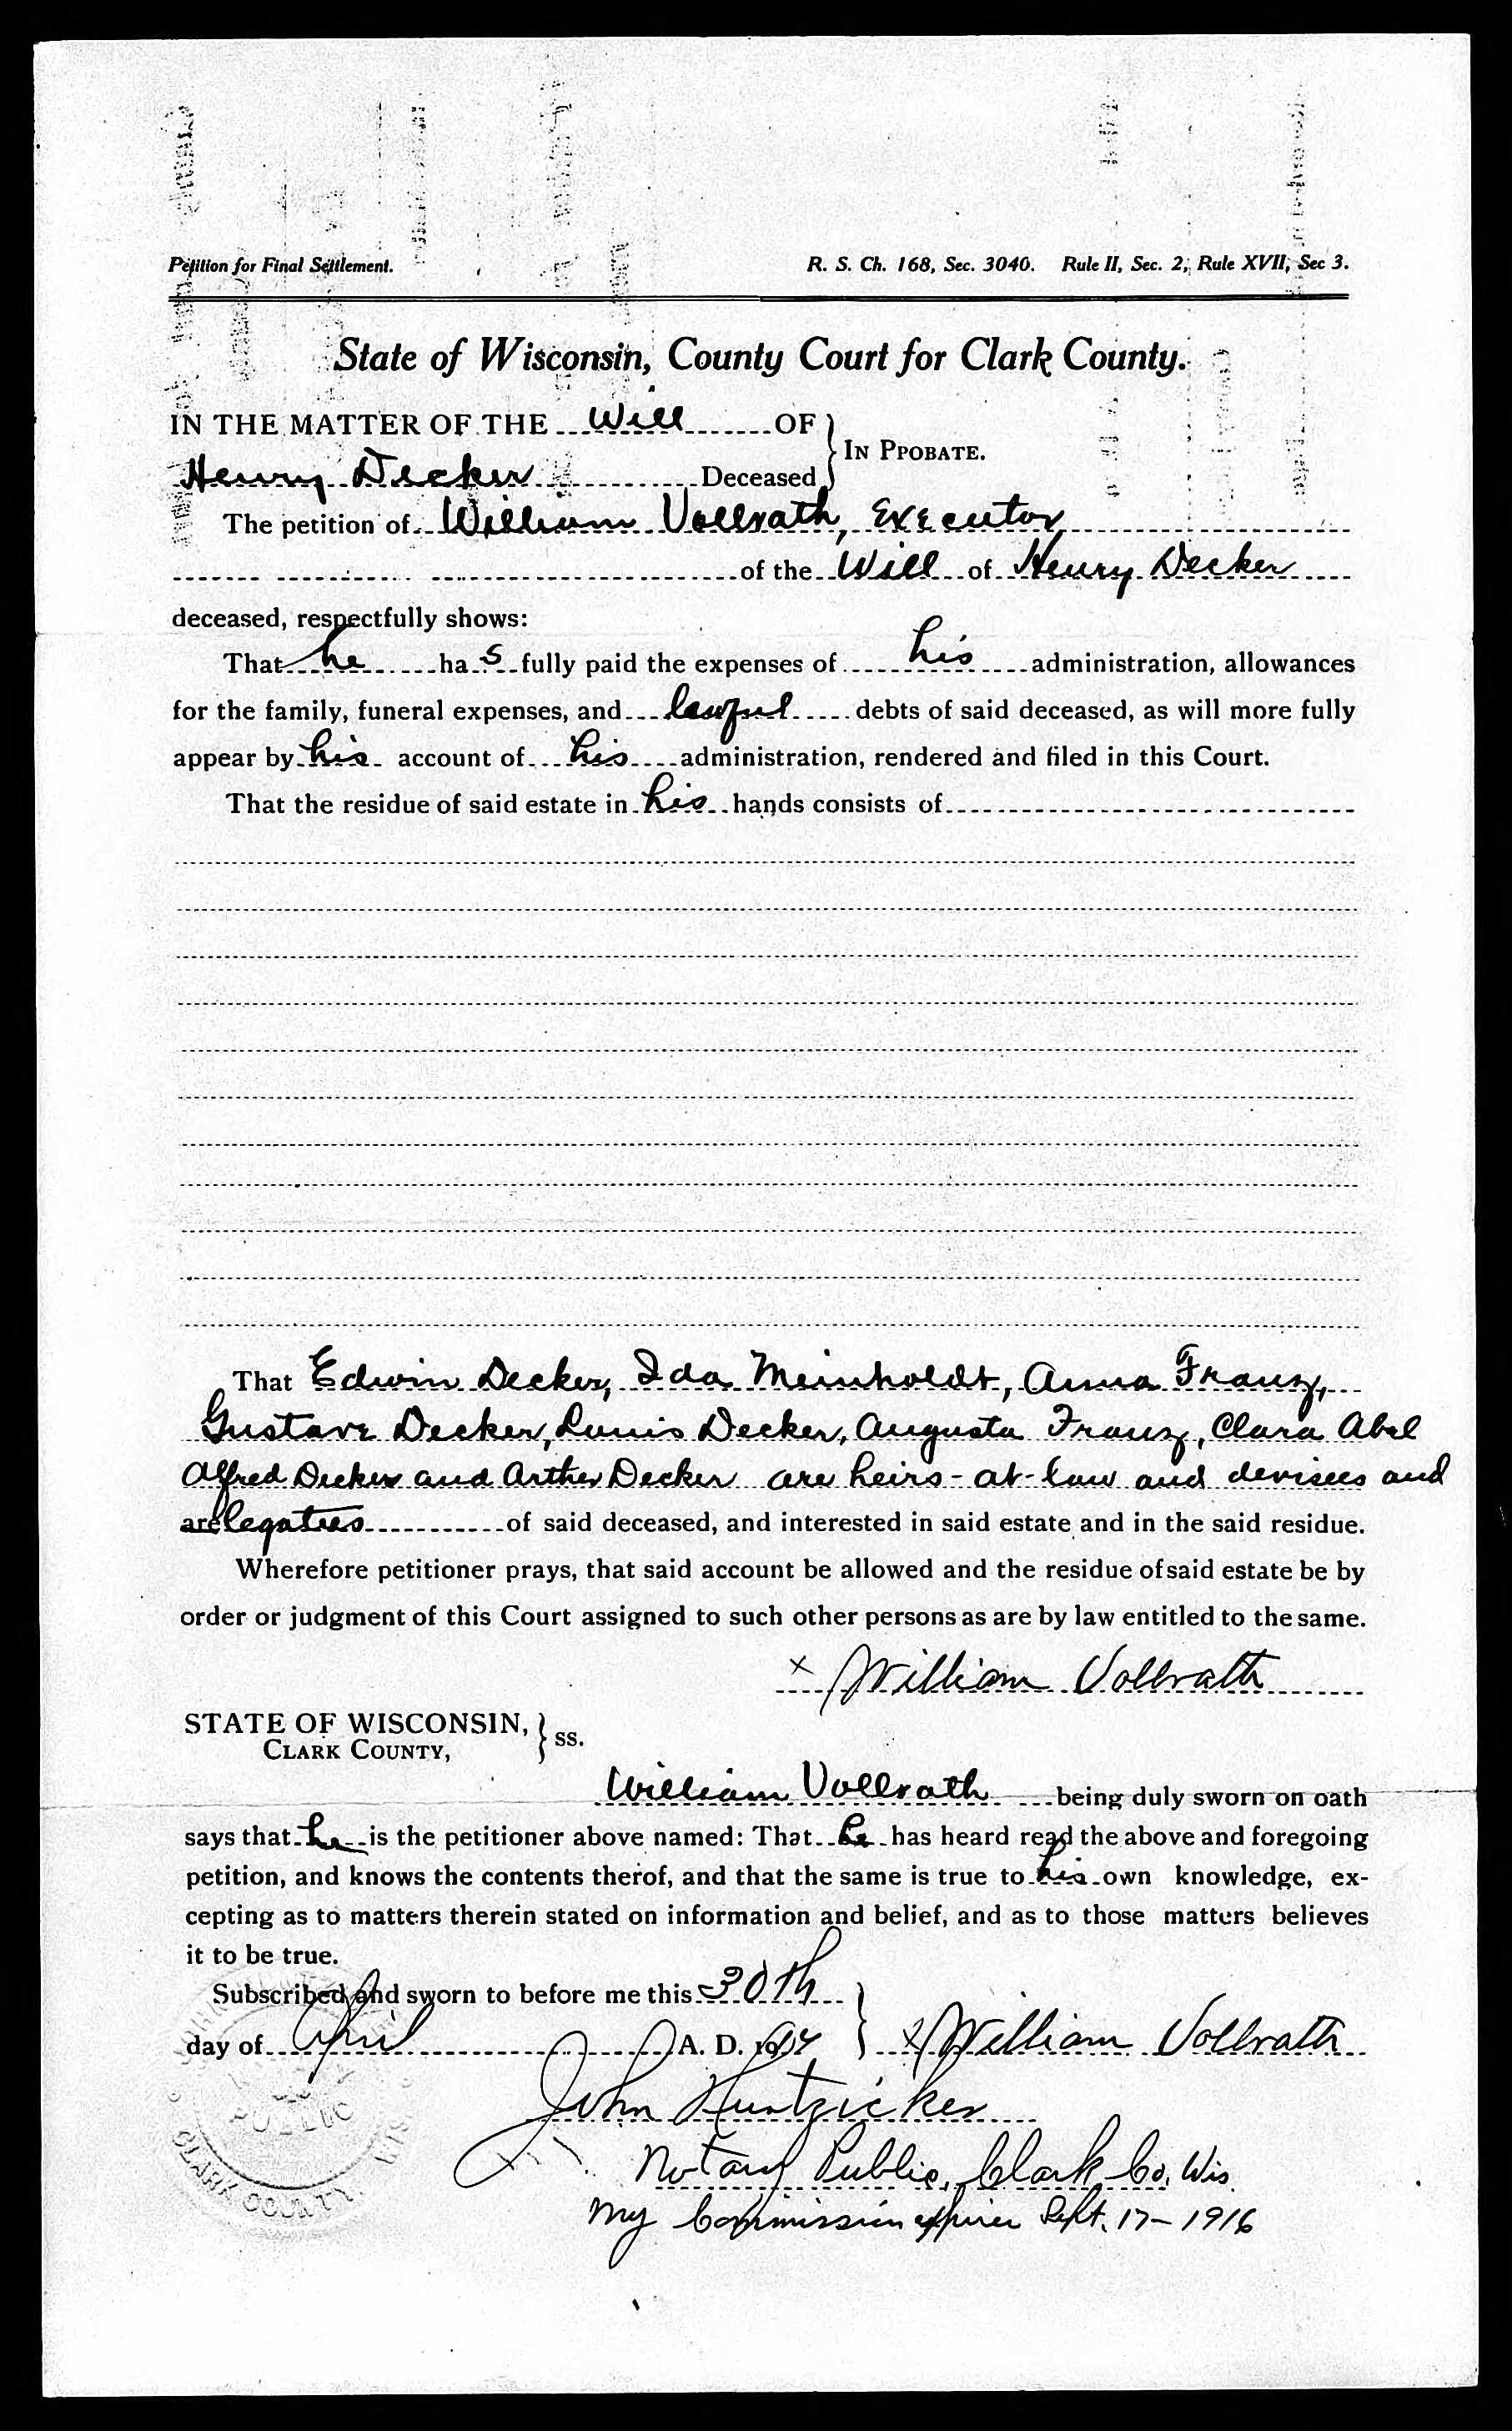 Petition for Final Settlement. R. S. Ch. 168, Sec. 3040. Rule II, Sec. 2; Rule XVII, Sec 3.
State of Wisconsin, County Court for Clark County.
IN THE MATTER OF THE Will OF
IN PPOBATE.
Henry Decker Deceased
The petition of William Vollrath, Executor
of the Will of Henry Decker
deceased, respectfully shows:
That he has fully paid the expenses of his administration, allowances
for the family, funeral expenses, and lawful debts of said deceased, as will more fully
appear by his account of his administration, rendered and filed in this Court.
That the residue of said estate in his hands consists of
That Edwin Decker, Ida Meinholdt, Anna Franz,
Gustave Decker, Louis Decker, Augusta Franz, Clara Abel
Alfred Decker and Arther Decker are heirs-at-law and devisees and
are legatees of said deceased, and interested in said estate and in the said residue.
Wherefore petitioner prays, that said account be allowed and the residue of said estate be by
order or judgment of this Court assigned to such other persons as are by law entitled to the same.
x William Vollrath
STATE OF WISCONSIN,
ss.
CLARK COUNTY,
William Vollrath being duly sworn on oath
says that he is the petitioner above named: That he has heard read the above and foregoing
petition, and knows the contents therof, and that the same is true to his own knowledge, ex-
cepting as to matters therein stated on information and belief, and as to those matters believes
it to be true.
Subscribed and sworn to before me this 30th
day of April A. D. 1914 x William Vollrath
John Huntzicker
Notary Public, Clark Co, Wis.
My Commission expires Sept. 17-1916
PUBLIC
CLARK COUNTY, WIS